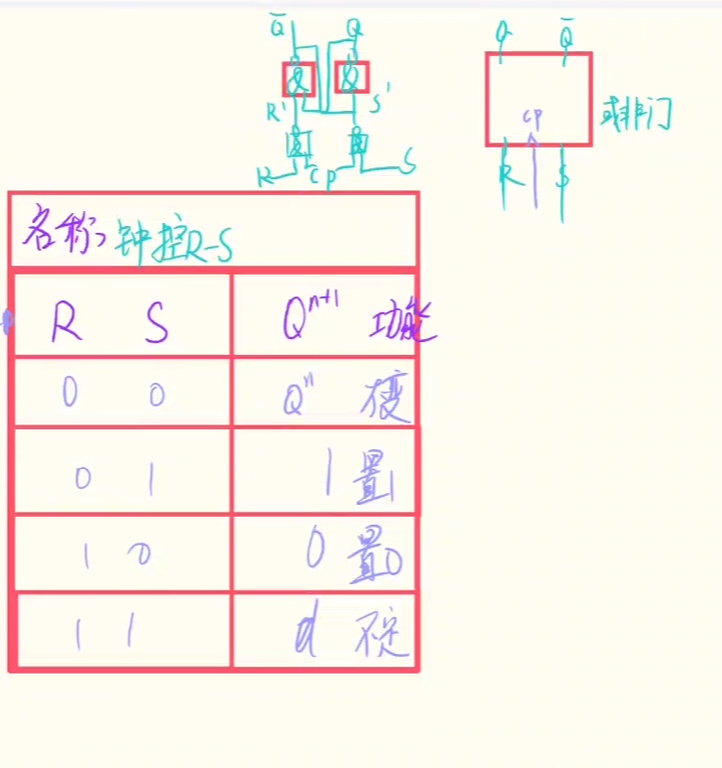 Q̄ Q
& &
R' S'
R CP S
Q Q̄
CP
R S
或非门
名称: 钟控R-S
R S Qⁿ⁺¹ 功能
0 0 Qⁿ 不变
0 1 1 置1
1 0 0 置0
1 1 d 不定